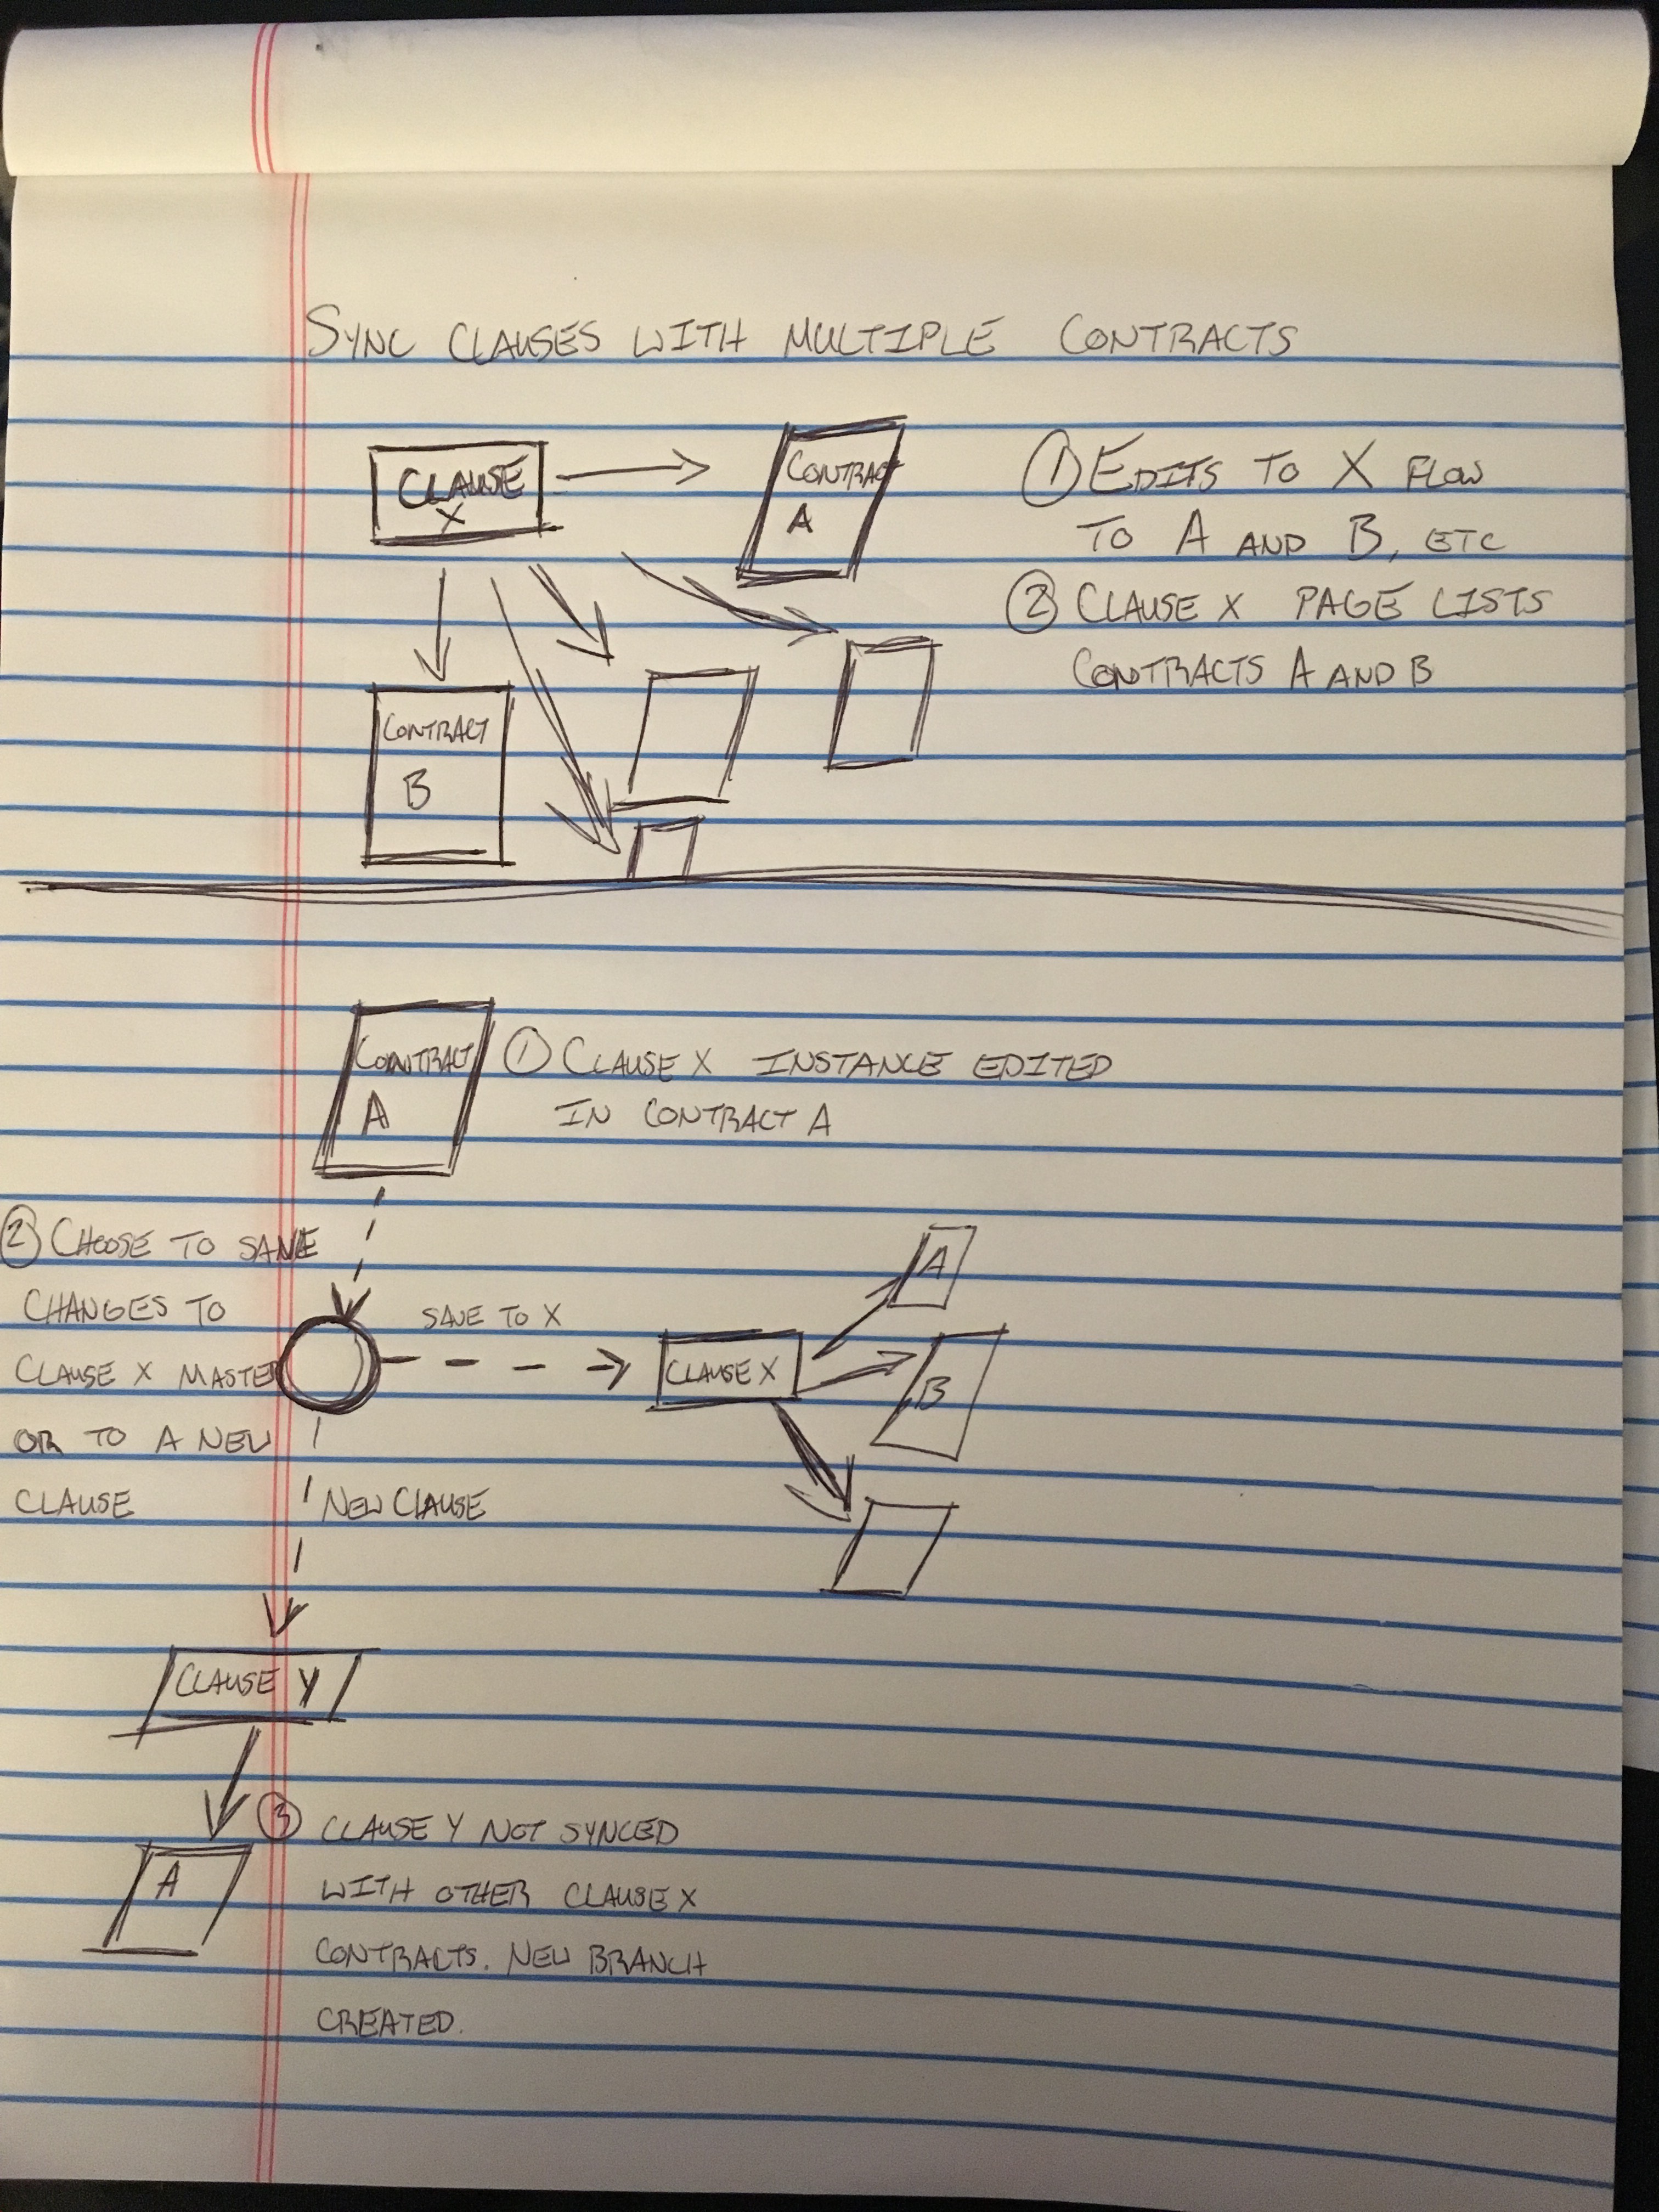 SYNC CLAUSES WITH MULTIPLE CONTRACTS
CLAUSE
X
CONTRACT
A
① EDITS TO X FLOW
TO A AND B, ETC
② CLAUSE X PAGE LISTS
CONTRACTS A AND B
CONTRACT
B
CONTRACT
A
① CLAUSE X INSTANCE EDITED
IN CONTRACT A
② CHOOSE TO SAVE
CHANGES TO
CLAUSE X MASTER
OR TO A NEW
CLAUSE
SAVE TO X
CLAUSE X
A
B
NEW CLAUSE
CLAUSE Y
A
③ CLAUSE Y NOT SYNCED
WITH OTHER CLAUSE X
CONTRACTS. NEW BRANCH
CREATED.